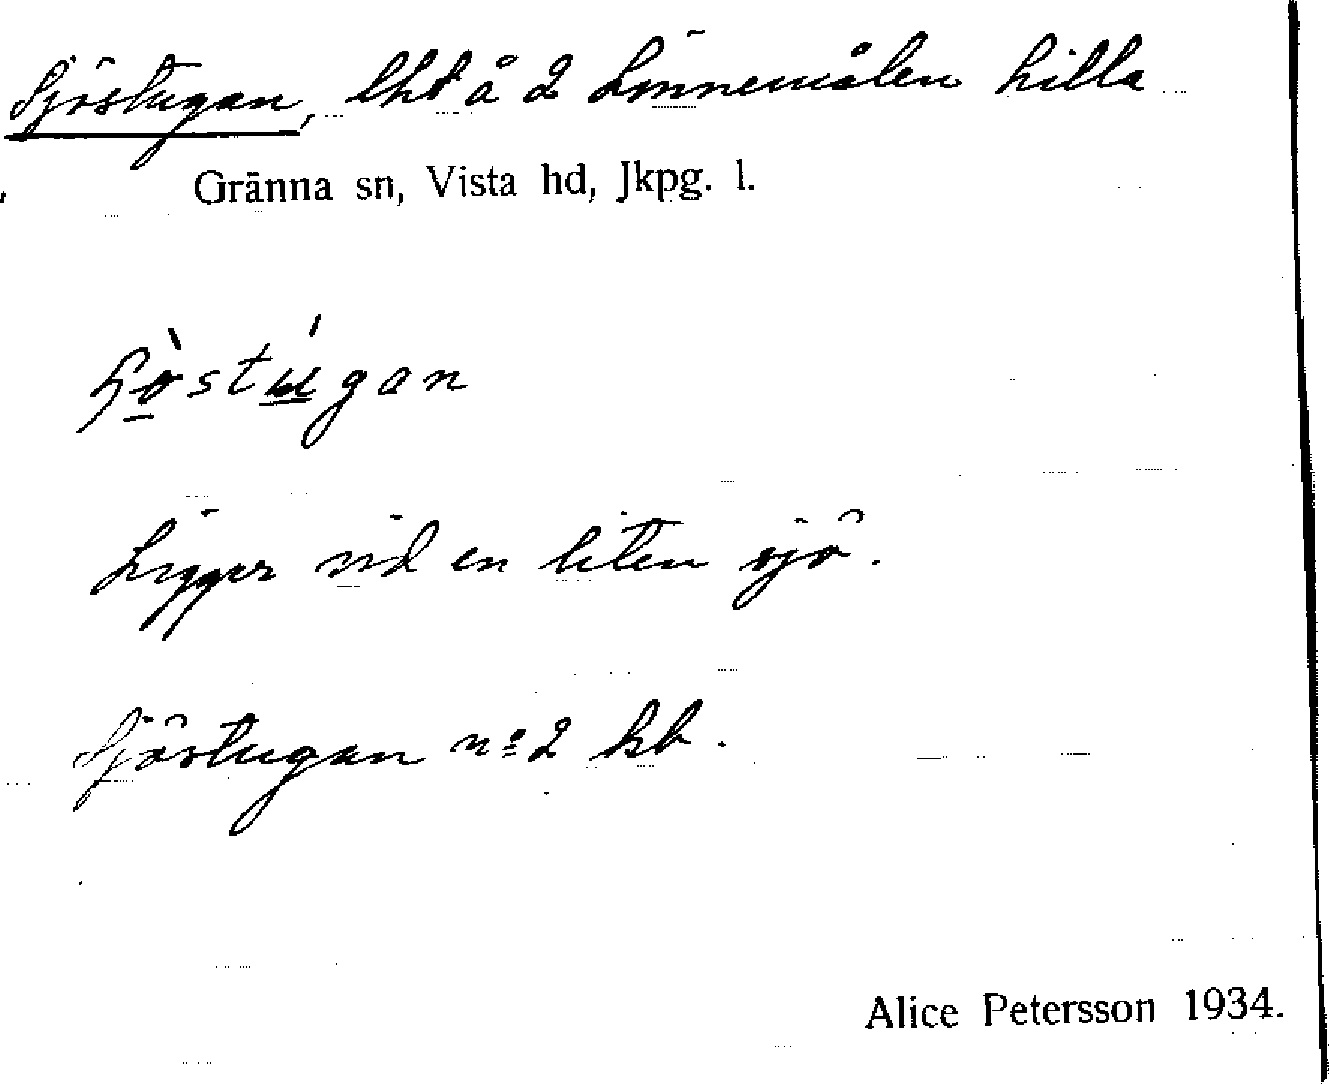 Sjöstugan, lht å 2 Linnemålen lilla
Gränna sn, Vista hd, Jkpg. l.
ʃö̀stúgan
Ligger vid en liten sjö.
Sjöstugan nº 2 kb.
Alice Petersson 1934.